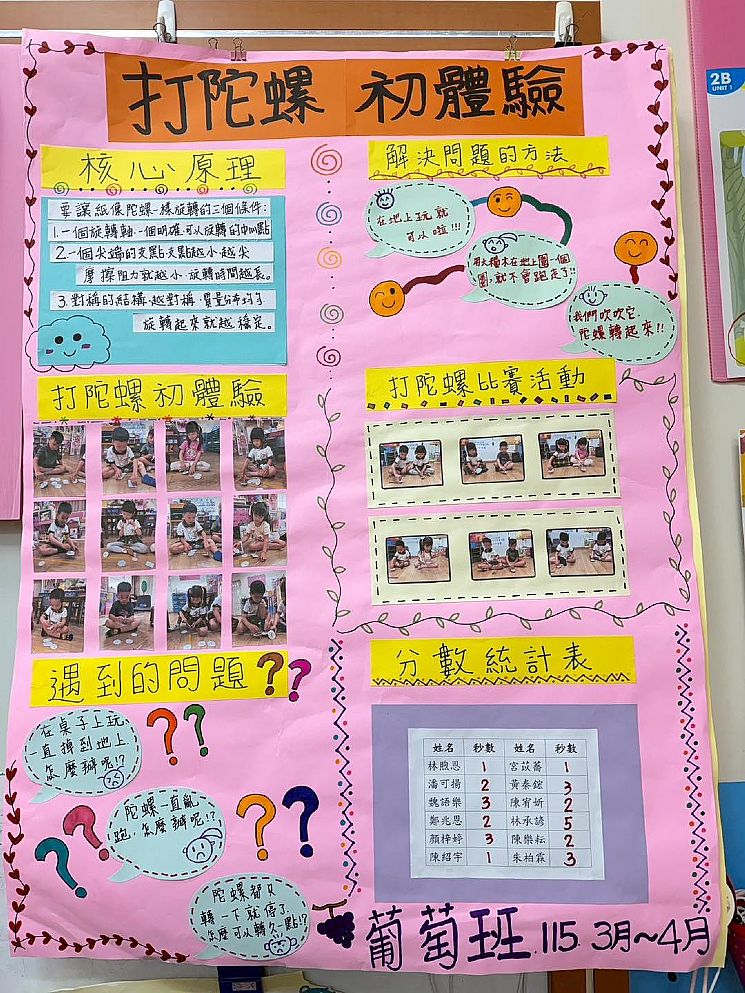 打陀螺 初體驗
2B
UNIT 1
核心原理
要讓紙像陀螺一樣旋轉的三個條件:
1.一個旋轉軸.一個明確.可以旋轉的中心點
2.一個尖端的支點.支點越小.越尖
摩擦阻力就越小.旋轉時間越長。
3.對稱的結構.越對稱.質量分布均勻
旋轉起來就越穩定。
解決問題的方法
在地上玩就
可以啦!!!
用大積木在地上圍一個
圈,就不會跑走了!!
我們吹吹它.
陀螺轉起來!!
打陀螺初體驗
打陀螺比賽活動
遇到的問題??
在桌子上玩
一直掉到地上.
怎麼辦呢!?
陀螺一直亂
跑,怎麼辦呢!?
陀螺都只
轉一下就停了.
怎麼可以轉久一點!?
分數統計表
姓名 秒數 姓名 秒數
林煦恩 1 宮苡蕎 1
潘可揚 2 黃秦鋐 3
魏語樂 3 陳宥妡 2
鄭兆恩 2 林承諺 5
顏梓婷 3 陳樂耘 2
陳紹宇 1 朱柏霖 3
葡萄班.115.3月~4月